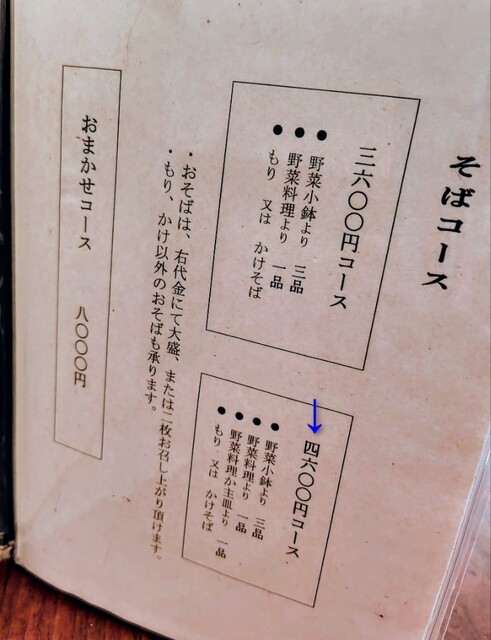 そばコース
三六〇〇円コース
● 野菜小鉢より 三品
● 野菜料理より 一品
● もり 又は かけそば
四六〇〇円コース
● 野菜小鉢より 三品
● 野菜料理より 一品
● 野菜料理か主皿より 一品
● もり 又は かけそば
・おそばは、右代金にて大盛、または二枚お召し上がり頂けます。
・もり、かけ以外のおそばも承ります。
おまかせコース 八〇〇〇円